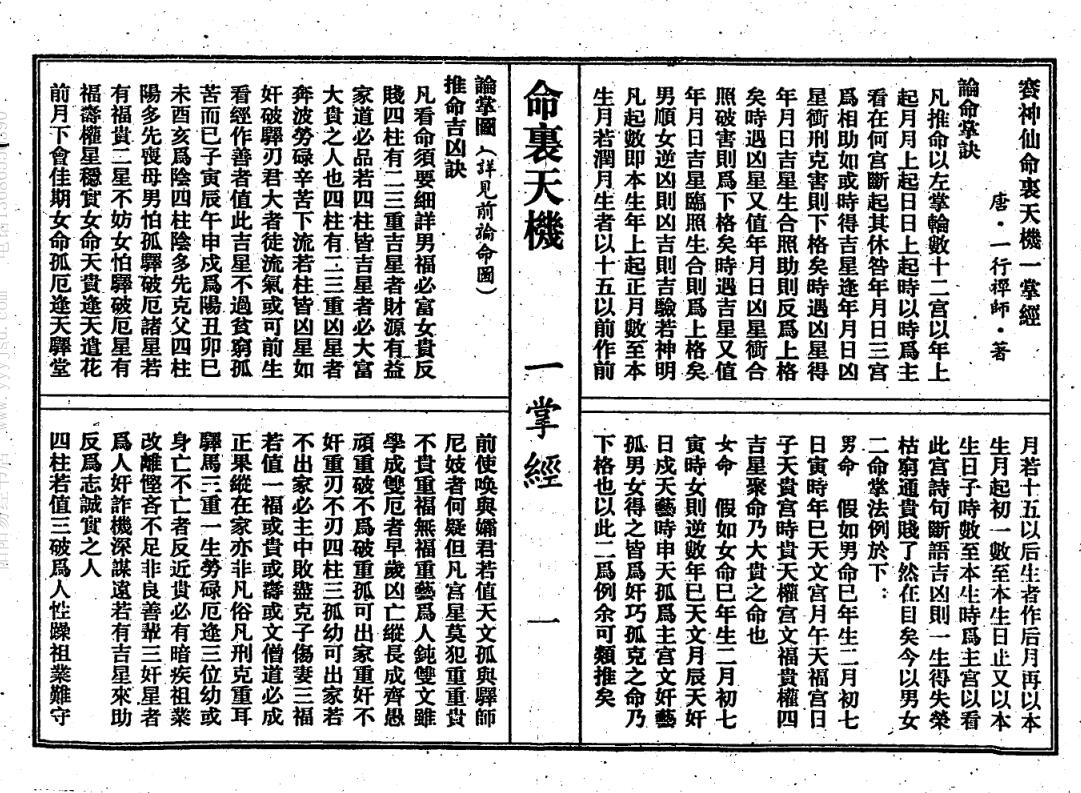 賽神仙命裏天機一掌經
唐·一行禪師·著
論命掌訣
凡推命以左掌輪數十二宮以年上
起月月上起日日上起時以時爲主
看在何宮斷起其休咎年月日三宮
爲相助如或時得吉星逢年月日凶
星衝刑克害則下格矣時遇凶星得
年月日吉星生合照助則反爲上格
矣時遇凶星又值年月日凶星衝合
照破害則爲下格矣時遇吉星又值
年月日吉星臨照生合則爲上格矣
男順女逆凶則凶吉則吉驗若神明
凡起數即本生年上起正月數至本
生月若潤月生者以十五以前作前
月若十五以后生者作后月再以本
生月起初一數至本生日止又以本
生日子時數至本生時爲主宮以看
此宮詩句斷語吉凶則一生得失榮
枯窮通貴賤了然在目矣今以男女
二命掌法例於下：
男命 假如男命巳年生二月初七
日寅時年巳天文宮月午天福宮日
子天貴宮時貴天權宮文福貴權四
吉星聚命乃大貴之命也
女命 假如女命巳年生二月初七
寅時女則逆數年巳天文月辰天奸
日戌天藝時申天孤爲主宮文奸藝
孤男女得之皆爲奸巧孤克之命乃
下格也以此二爲例余可類推矣
命裏天機 一掌經 一
論掌圖（詳見前論命圖）
推命吉凶訣
凡看命須要細詳男福必富女貴反
賤四柱有二三重吉星者財源有益
家道必品若四柱皆吉星者必大富
大貴之人也四柱有二三重凶星者
奔波勞碌辛苦下流若柱皆凶星如
奸破驛刃君大者徒流氣或可前生
看經作善者值此吉星不過貧窮孤
苦而已子寅辰午申戌爲陽丑卯巳
未酉亥爲陰四柱陰多先克父四柱
陽多先喪母男怕孤驛破厄諸星若
有福貴二星不妨女怕驛破厄星有
福壽權星穩實女命天貴逢天遣花
前月下會佳期女命孤厄逢天驛堂
前使喚與孀君若值天文孤與驛師
尼妓者何疑但凡宮星莫犯重重貴
不貴重福無福重藝爲人鈍雙文雖
學成雙厄者早歲凶亡縱長成齊愚
頑重破不爲破重孤可出家重奸不
奸重刃不刃四柱三孤幼可出家若
不出家必主中敗盡克子傷妻三福
若值一福或貴或壽或文僧道必成
正果縱在家亦非凡俗凡刑克重耳
驛馬三重一生勞碌厄逢三位幼或
身亡不亡者反近貴必有暗疾祖業
改離慳吝不足非良善輩三奸星者
爲人奸詐機深謀遠若有吉星來助
反爲志誠實之人
四柱若值三破爲人性躁祖業難守